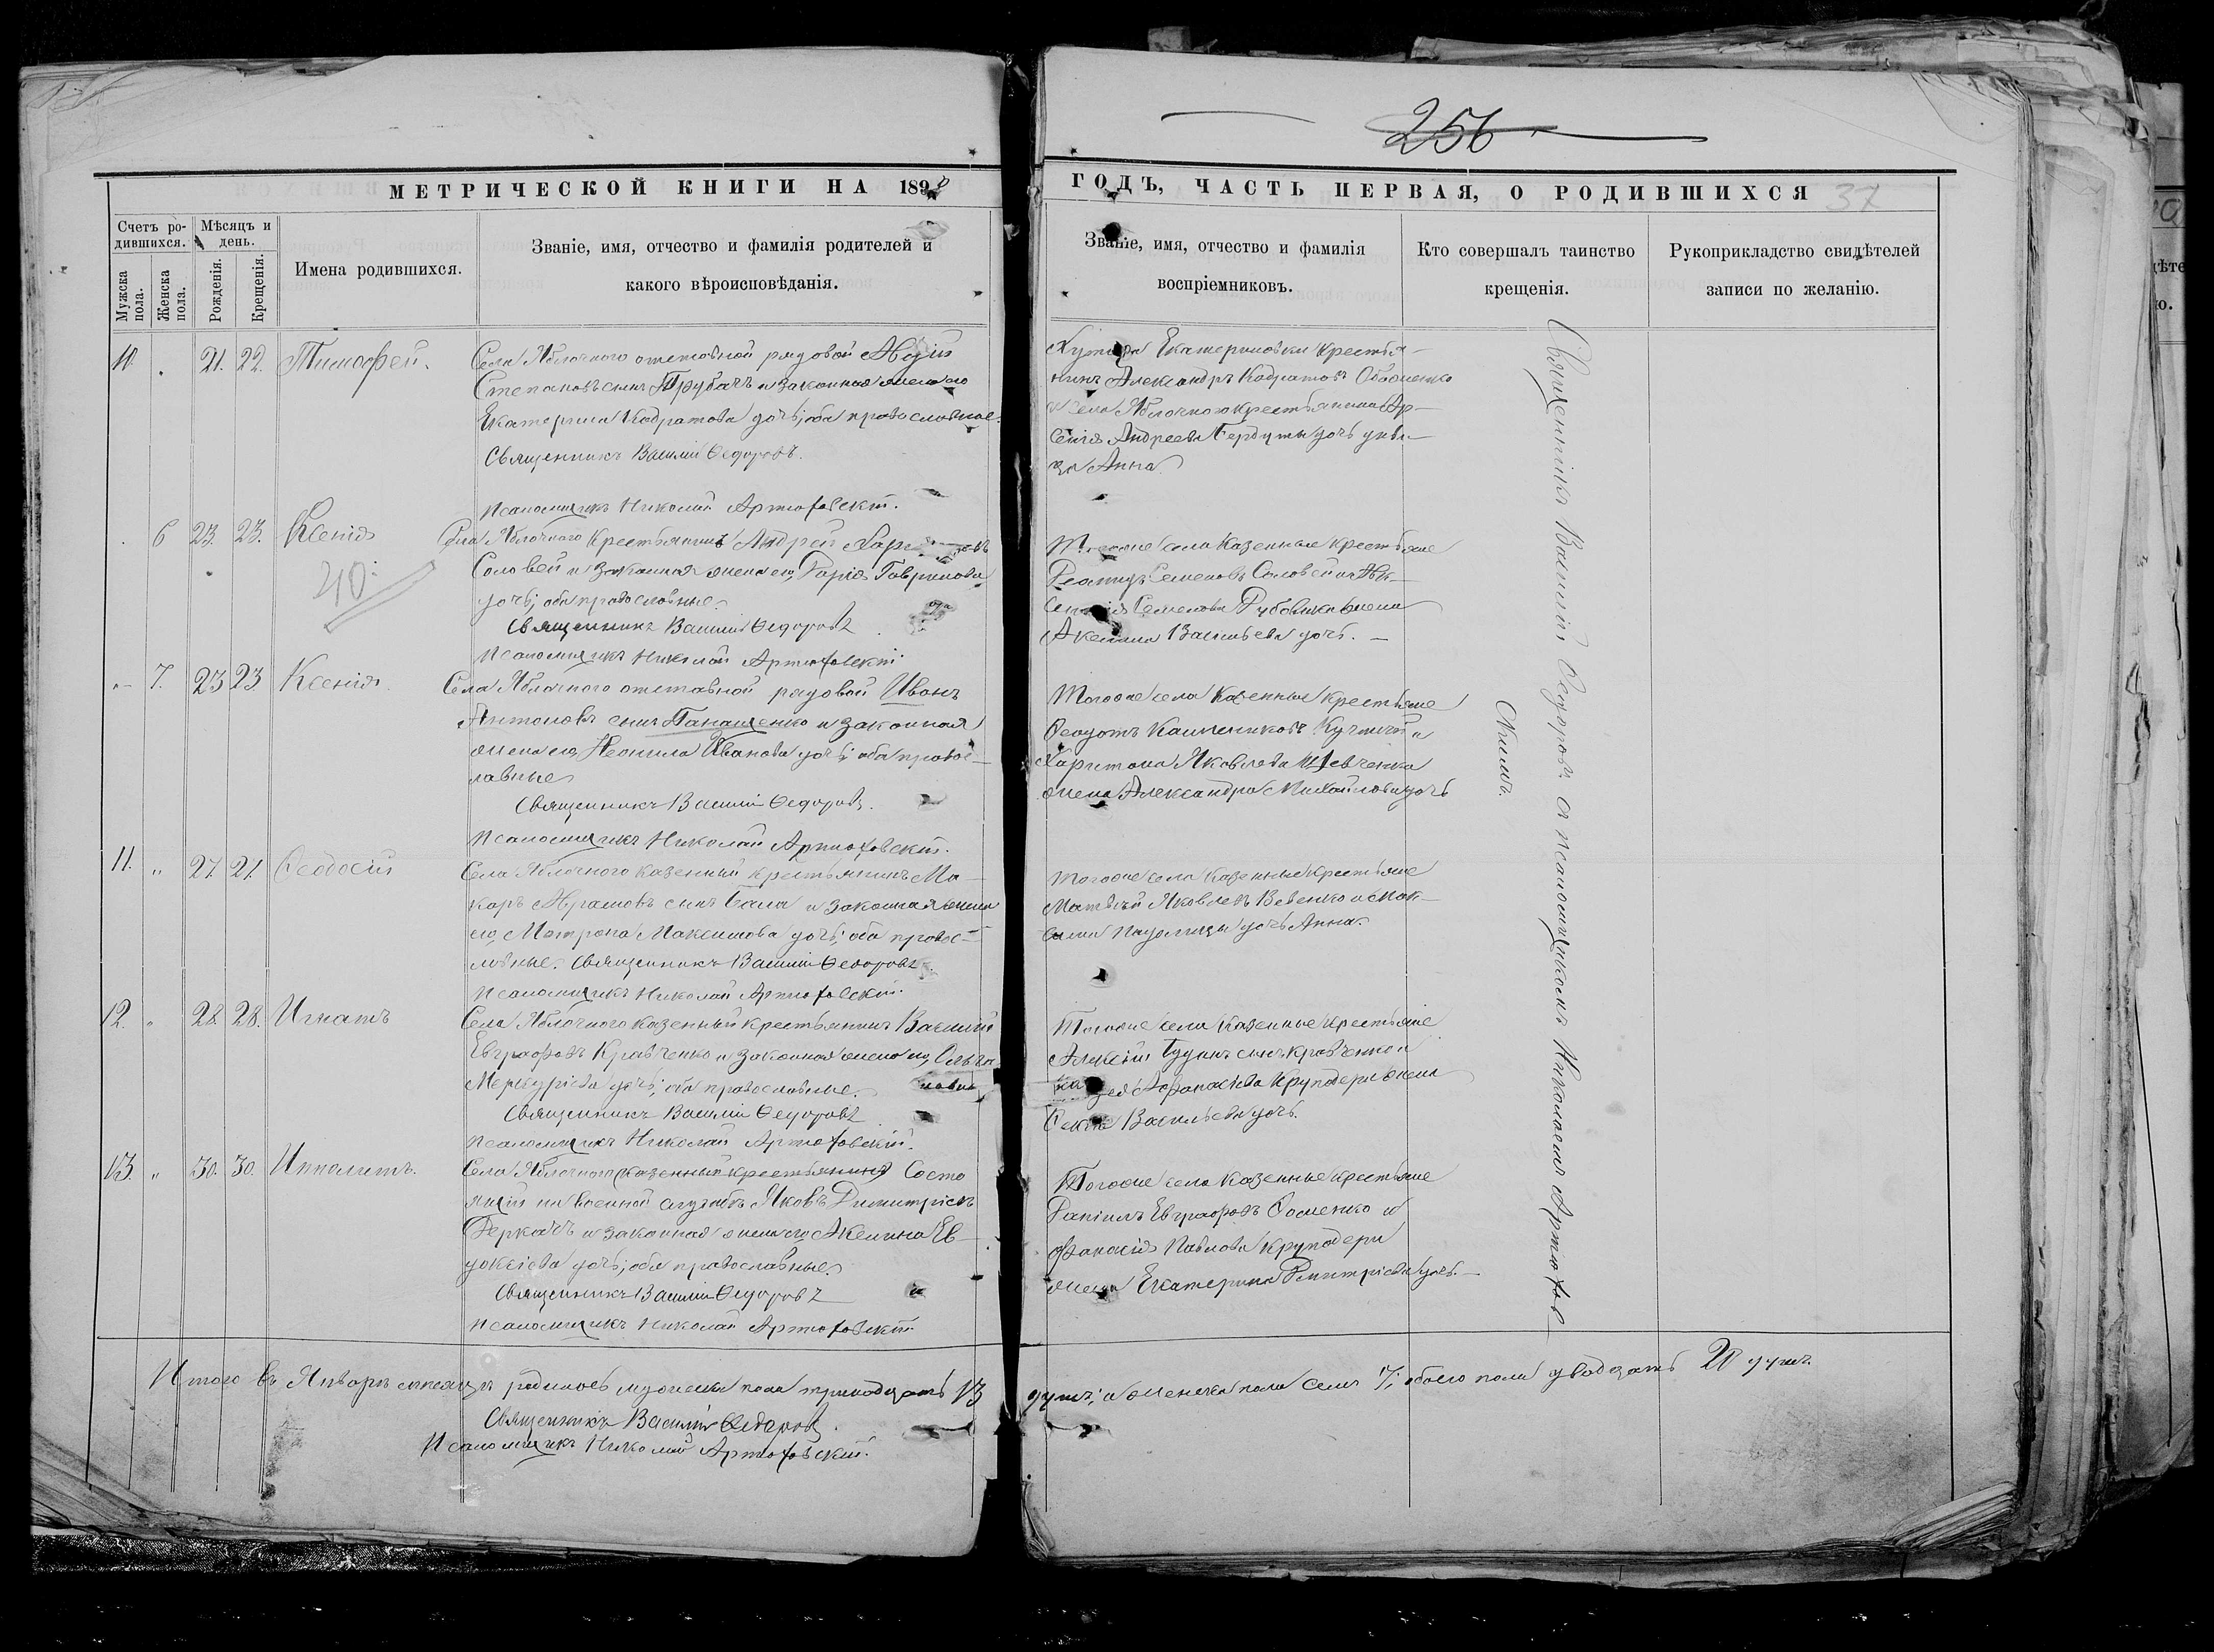 256
МЕТРИЧЕСКОЙ КНИГИ НА 189
ГОДЪ, ЧАСТЬ ПЕРВАЯ, О РОДИВШИХСЯ 37
Счетъ ро-
дившихся.
Мѣсяцъ и
день.
Мужска
пола.
Женска
пола.
Рожденія.
Крещенія.
Имена родившихся.
Званіе, имя, отчество и фамилія родителей и
какого вѣроисповѣданія.
Званіе, имя, отчество и фамилія
воспріемниковъ.
Кто совершалъ таинство
крещенія.
Рукоприкладство свидѣтелей
записи по желанію.
10. 21. 22. Тимофей.
Села Яблочного отставной рядовой
Степановъ сынъ Трубачъ и законная жена его
Екатерина Кодратова дочь; оба православные.
Священникъ Василій Ѳедоровъ.
Псаломщикъ Николай Артюховскій.
Хутора Екатериновки крестья-
нинъ Александръ Кодратовъ
и села Яблочного крестьянина Ар-
сенія Андреева дочь дѣви-
ца Анна
6 23. 23. Ксенія
40
Села Яблочного крестьянинъ Андрей
Соловей и законная жена его, Гаврилова
дочь; оба православные.
Священникъ Василій Ѳедоровъ
Псаломщикъ Николай Артюховскій
Тогоже села казенные крестьяне
Семеновъ Соловей и
Семенова жена
Акелина Васильева дочь.
7. 23 23 Ксенія
Села Яблочного отставной рядовой Иванъ
Антоновъ сынъ Панащенко и законная
жена его, Неонила Иванова дочь; оба правос-
лавные
Священникъ Василій Ѳедоровъ.
Псаломщикъ Николай Артюховскій.
Тогоже села казенные крестьяне
Ѳеодотъ и
Харитона Яковлева Шевченка
жена Александра Михайлова дочь
11. " 27 27 Ѳеодосій
Села Яблочного казенный крестьянинъ Ма-
каръ Абрамовъ сынъ и законная жена
его, Матрона Максимова дочь; оба правос-
лавные. Священникъ Василій Ѳедоровъ
Псаломщикъ Николай Артюховскій.
Тогоже села казенные крестьяне
Матвѣй Яковлевъ и Мак-
сима дочь Анна.
12. " 28. 28. Игнатъ
Села Яблочного казенный крестьянинъ Василій
Евграфовъ Кравченко и законная жена его,
Меркуріева дочь; оба православные.
Священникъ Василій Ѳедоровъ
Псаломщикъ Николай Артюховскій.
Тогоже села казенные крестьяне
Алексій сынъ Кравченко и
Афанасіева Круподери жена
Васильева дочь.
13. " 30. 30. Ипполитъ.
Села Яблочного казенный крестьянинъ Состо
ящій на военной службѣ Яковъ Димитріевъ
Деркачъ и законная жена его Акелина Ев-
докіева дочь; оба православные.
Священникъ Василій Ѳедоровъ
Псаломщикъ Николай Артюховскій
Тогоже села казенные крестьяне
Даніилъ Евграфовъ и
Афанасія Павлова Круподери
жена Екатерина Дмитріева дочь.
Священникъ Василій Ѳедоровъ съ псаломщикомъ Николаемъ Артюхов
скимъ.
Итого въ Январѣ мѣсяцѣ родилось мужеска пола тринадцать 13
душъ; и женска пола семь 7; обоего пола двадцать 20 душъ.
Священникъ Василій Ѳедоровъ.
Псаломщикъ Николай Артюховскій.